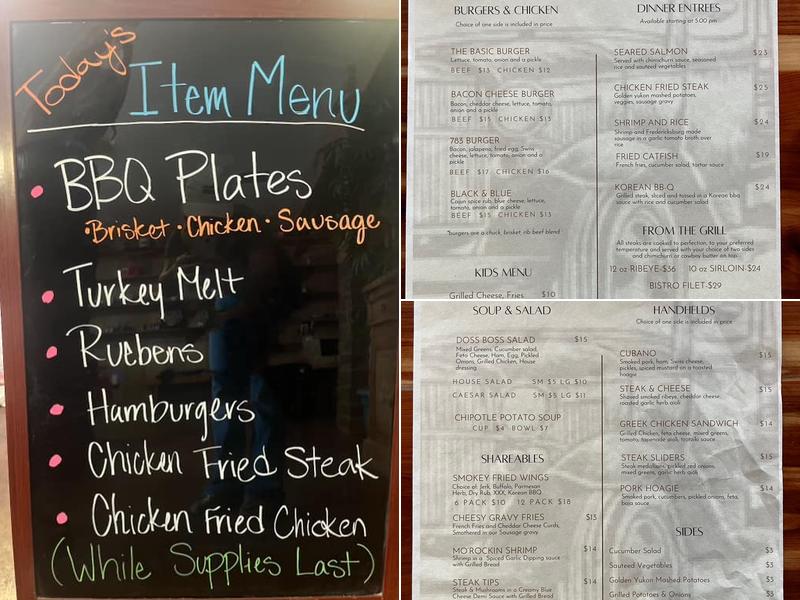 Today's
Item Menu
BBQ Plates
Brisket · Chicken · Sausage
Turkey Melt
Ruebens
Hamburgers
Chicken Fried Steak
Chicken Fried Chicken
(While Supplies Last)
BURGERS & CHICKEN
Choice of one side is included in price
THE BASIC BURGER
Lettuce, tomato, onion and a pickle
BEEF $13 CHICKEN $12
BACON CHEESE BURGER
Bacon, cheddar cheese, lettuce, tomato,
onion and a pickle
BEEF $15 CHICKEN $13
783 BURGER
Bacon, jalapeno, fried egg, Swiss
cheese, lettuce, tomato, onion and a
pickle
BEEF $17 CHICKEN $16
BLACK & BLUE
Cajun spice rub, blue cheese, lettuce,
tomato, onion and a pickle
BEEF $15 CHICKEN $13
*burgers are a chuck, brisket, rib beef blend
KIDS MENU
Grilled Cheese, Fries $10
DINNER ENTREES
Available starting at 5:00 pm
SEARED SALMON $23
Served with chimichurri sauce, seasoned
rice and sauteed vegetables
CHICKEN FRIED STEAK $25
Golden yukon mashed potatoes,
veggies, sausage gravy
SHRIMP AND RICE $24
Shrimp and Fredericksburg made
sausage in a garlic tomato broth over
rice
FRIED CATFISH $19
French fries, cucumber salad, tartar sauce
KOREAN BB-Q $24
Grilled steak, sliced and tossed in a Korean bbq
sauce with rice and cucumber salad
FROM THE GRILL
All steaks are cooked to perfection, to your preferred
temperature and served with your choice of two sides
and chimichurri or cowboy butter on top.
12 oz RIBEYE-$36 10 oz SIRLOIN-$24
BISTRO FILET-$29
SOUP & SALAD
DOSS BOSS SALAD $15
Mixed Greens, Cucumber salad,
Feta Cheese, Ham, Egg, Pickled
Onions, Grilled Chicken, House
dressing
HOUSE SALAD SM $5 LG $10
CAESAR SALAD SM $5 LG $11
CHIPOTLE POTATO SOUP
CUP $4 BOWL $7
SHAREABLES
SMOKEY FRIED WINGS
Choice of: Jerk, Buffalo, Parmesan
Herb, Dry Rub, XXX, Korean BBQ
6 PACK $10 12 PACK $18
CHEESY GRAVY FRIES $13
French Fries and Cheddar Cheese Curds,
Smothered in our Sausage gravy
MO'ROCKIN SHRIMP $14
Shrimp in a Spiced Garlic Dipping sauce
with Grilled Bread
STEAK TIPS $14
Steak & Mushrooms in a Creamy Blue
Cheese Demi Sauce with Grilled Bread
HANDHELDS
Choice of one side is included in price
CUBANO $15
Smoked pork, ham, Swiss cheese,
pickles, spiced mustard on a toasted
hoagie
STEAK & CHEESE $15
Shaved smoked ribeye, cheddar cheese,
roasted garlic herb aioli
GREEK CHICKEN SANDWICH $14
Grilled Chicken, feta cheese, mixed greens,
tomato, tapenade aioli, tzatziki sauce
STEAK SLIDERS $15
Steak medallions, pickled red onions,
mixed greens, garlic herb aioli
PORK HOAGIE $14
Smoked pork, cucumbers, pickled onions, feta,
baja sauce
SIDES
Cucumber Salad $3
Sauteed Vegetables $3
Golden Yukon Mashed Potatoes $3
Grilled Potatoes & Onions $3